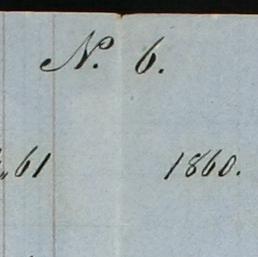 N. 6.
61 1860.